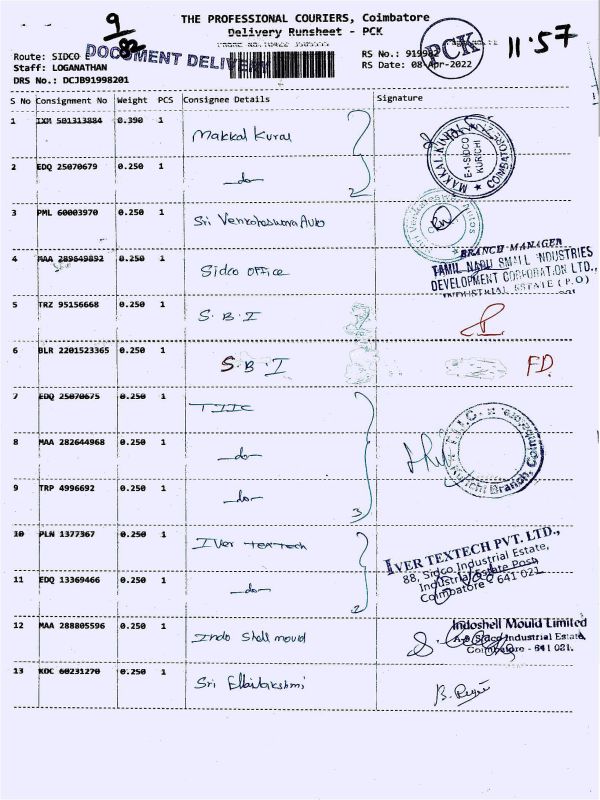 9
82
THE PROFESSIONAL COURIERS, Coimbatore
Delivery Runsheet - PCK
PCK
11.57
Route: SIDCO E
DOCUMENT DELIVERY
Staff: LOGANATHAN
RS Date: 08-Apr-2022
DRS No.: DCJB91998201
S No Consignment No Weight PCS Consignee Details Signature
1 IXM 501313884 0.390 1 Makkal Kural
MAKKAL KURAL E-1-SIDCO KURICHI COIMBATORE
2 EDQ 25070679 0.250 1 -do- 2
3 PML 60003970 0.250 1 Sri Venkateswara Auto
4 MAA 289649892 0.250 1 Sidco Office
BRANCH MANAGER
TAMIL NADU SMALL INDUSTRIES
DEVELOPMENT CORPORATION LTD.,
INDUSTRIAL ESTATE (P.O)
5 TRZ 95156668 0.250 1 S.B.I
6 BLR 2201523365 0.250 1 S.B.I FD.
7 EDQ 25070675 0.250 1 TIIC
8 MAA 282644968 0.250 1 -do-
Kurichi Branch,
9 TRP 4996692 0.250 1 -do- 3
10 PLN 1377367 0.250 1 IVer Textech
IVER TEXTECH PVT. LTD.,
88, Sidco Industrial Estate,
Industrial Estate Post
Coimbatore - 641 021.
11 EDQ 13369466 0.250 1 -do- 2
12 MAA 288805596 0.250 1 Indo Shell mould
Indoshell Mould Limited
Sidco Industrial Estate,
Coimbatore - 641 021.
13 KOC 60231270 0.250 1 Sri